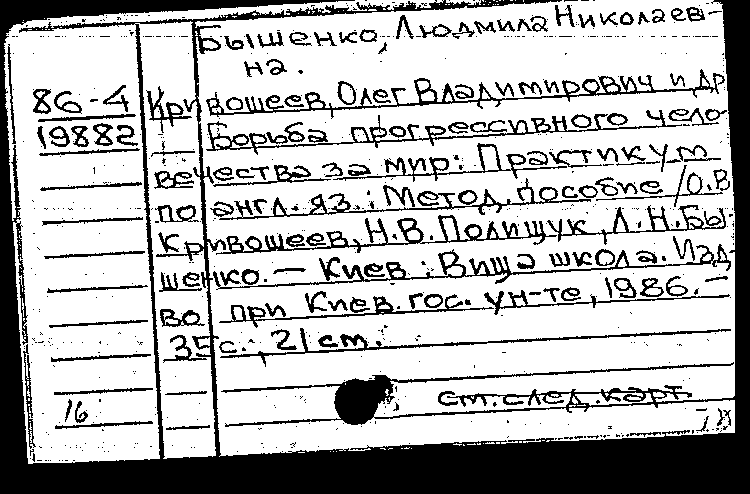 Бышенко, Людмила Николаев-
на.
86-4 Кривошеев, Олег Владимирович и др
19882 Борьба прогрессивного чело-
вечества за мир: Практикум
по англ. яз.: Метод. пособие / О.В
Кривошеев, Н.В. Полищук, Л.Н. Бы-
шенко. — Киев: Вища школа. Изд-
во при Киев. гос. ун-те, 1986. —
35с.; 21 см.
см. след. карт.
16